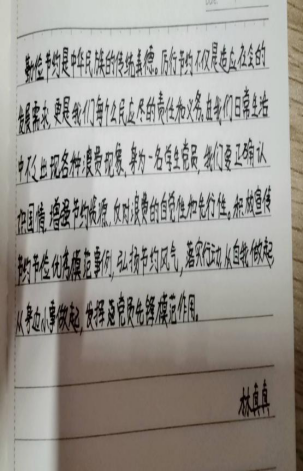 勤俭节约是中华民族的传统美德。厉行节约不仅是适应社会的
发展需求,更是我们每个公民应尽的责任和义务。在我们日常生活
中不乏出现各种浪费现象,身为一名学生党员,我们要正确认
识国情,增强节约资源,反对浪费的自觉性和先行性。积极宣传
节约节俭优秀模范事例,弘扬节约风气,落实行动从自我做起
从身边小事做起,发挥党员先锋模范作用。
林真真